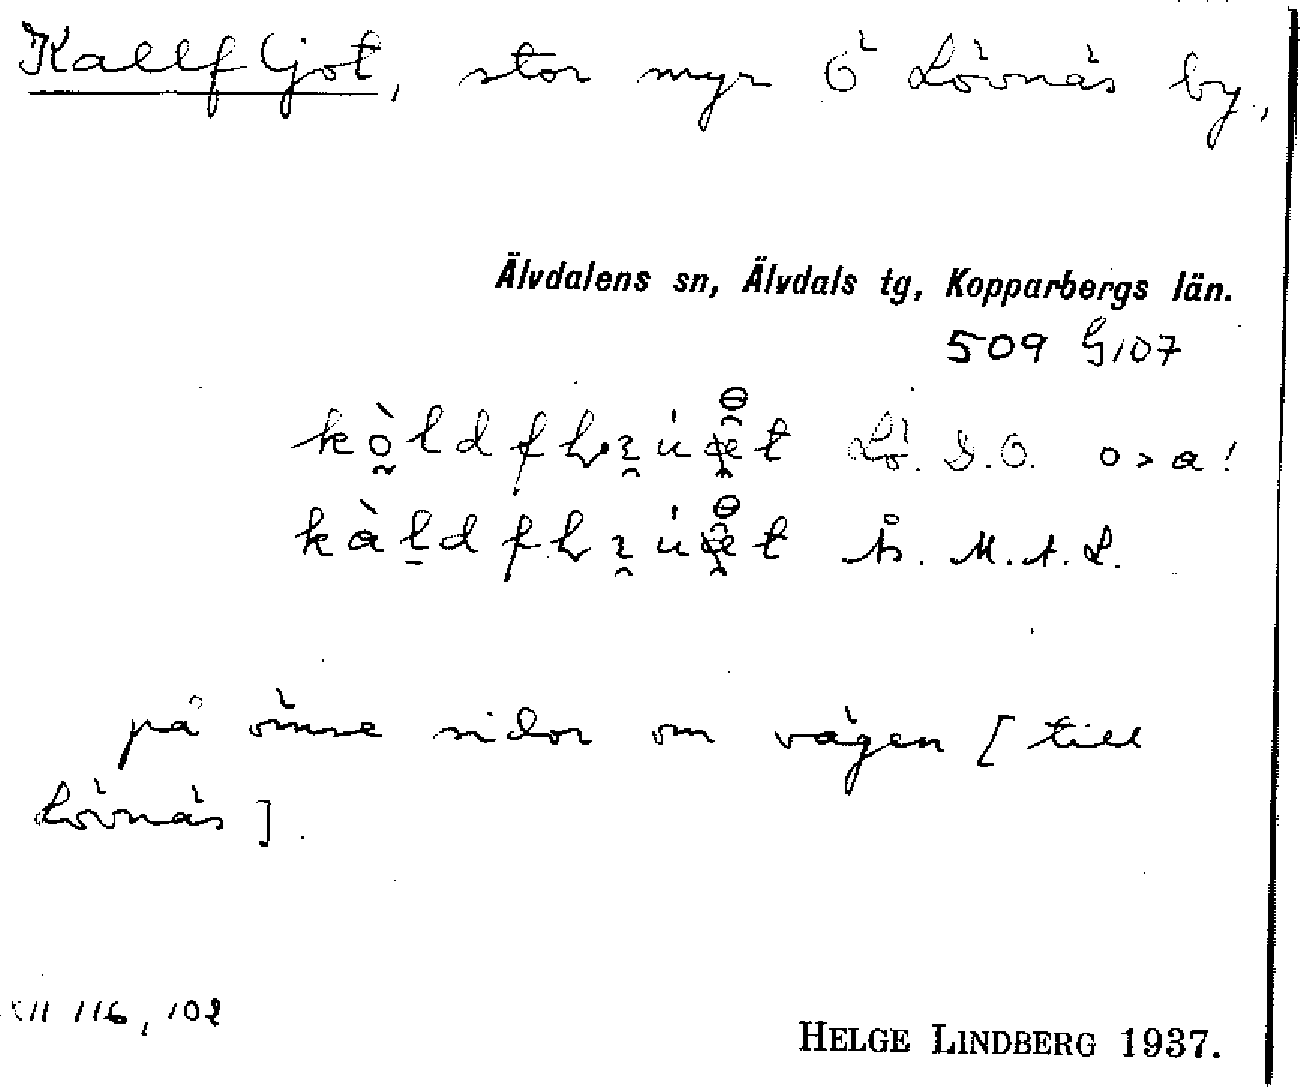 Kallfljot, stor myr Ö Lövnäs by.,
Älvdalens sn, Älvdals tg, Kopparbergs län.
509 G107
Lö. G.O. o > a!
Ås. M.A.L.
på ömse sidor om vägen [till
Lövnäs].
XII 116, 102
HELGE LINDBERG 1937.